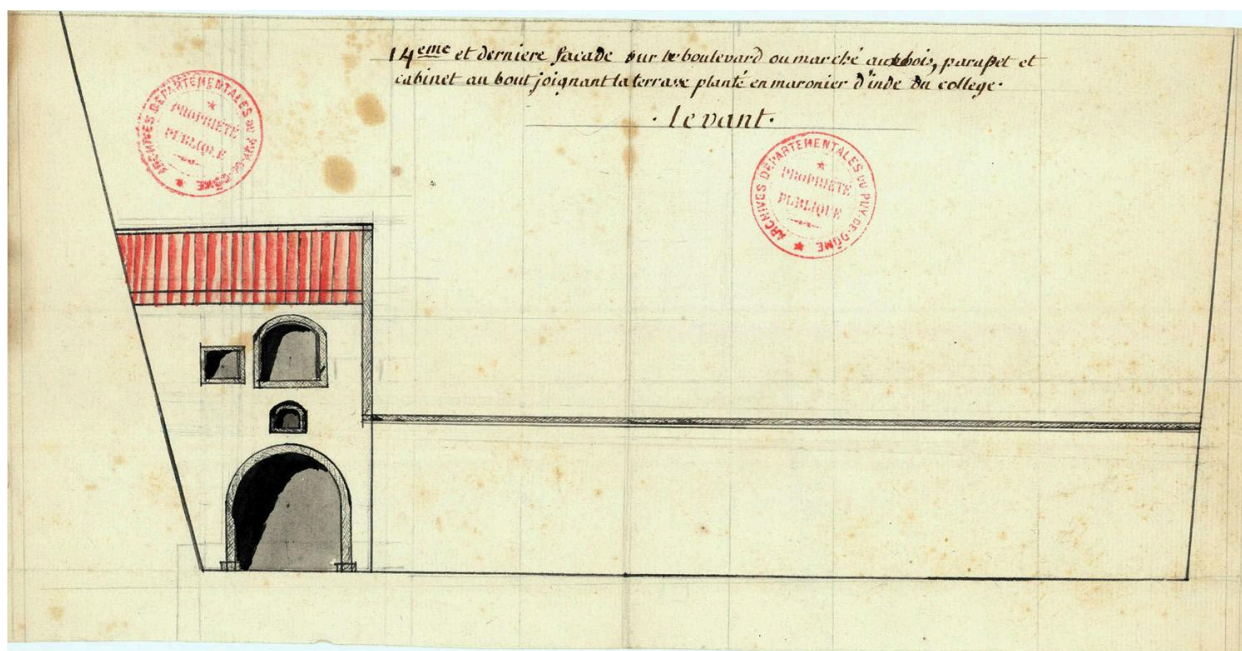 14eme et derniere facade sur le boulevard ou marché au bois, parapet et
cabinet au bout joignant la terrase planté en maronier d'inde du college.
. levant.
ARCHIVES DÉPARTEMENTALES DU PUY-DE-DÔME
PROPRIÉTÉ
PUBLIQUE
ARCHIVES DÉPARTEMENTALES DU PUY-DE-DÔME
PROPRIÉTÉ
PUBLIQUE